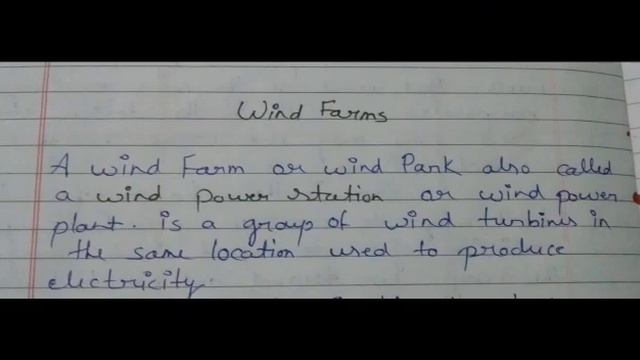 Wind Farms
A wind Farm or wind Park also called
a wind power station or wind power
plant. is a group of wind turbines in
the same location used to produce
electricity.